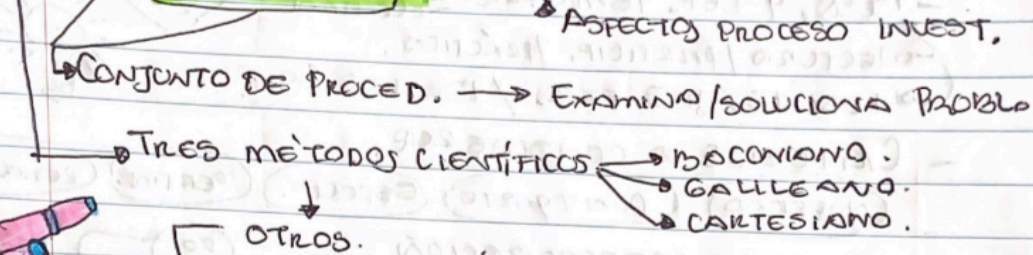 ASPECTOS PROCESO INVEST.
CONJUNTO DE PROCED. → EXAMINA/SOLUCIONA PROBL
TRES MÉTODOS CIENTÍFICOS → BACONIANO.
→ GALILEANO.
→ CARTESIANO.
↓
OTROS.